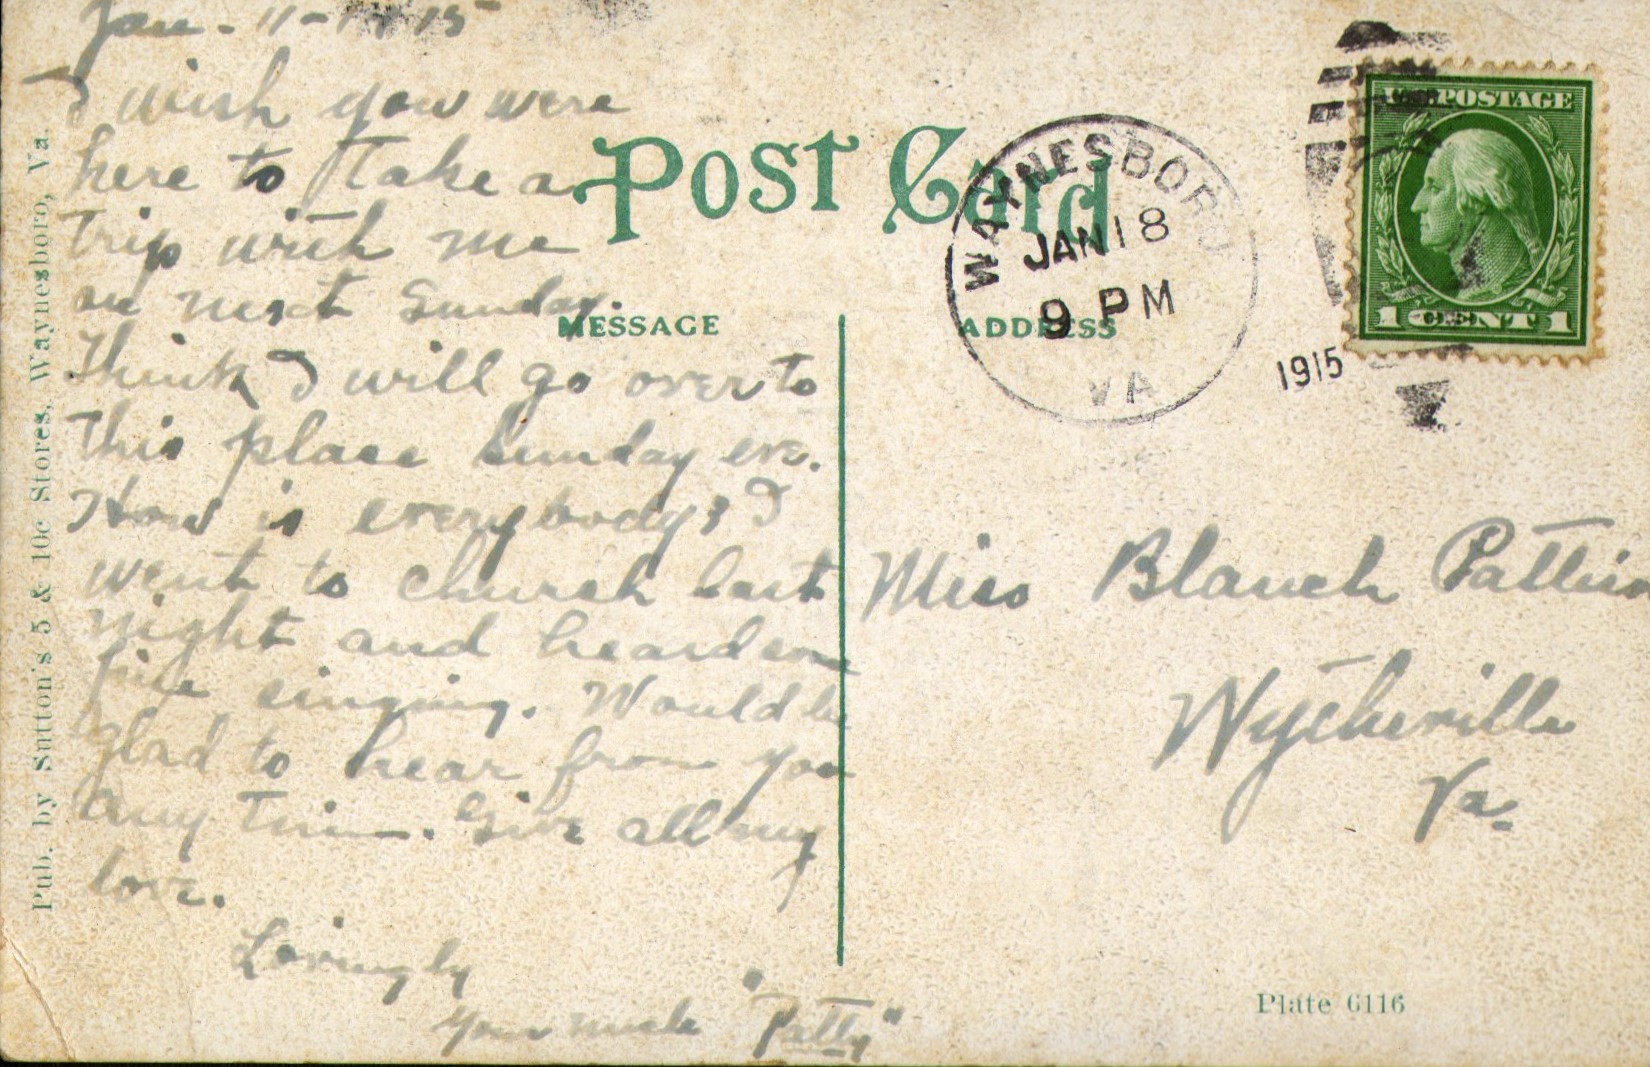 Jan. 11- 15
I wish you were
here to take a
trip with me
on next Sunday.
Think I will go over to
this place Sunday eve.
How is everybody? I
went to church last
night and heard some
fine singing. Would be
glad to hear from you
any time. Give all my
love.
Lovingly
Your uncle "Patty"
POST CARD
MESSAGE
ADDRESS
WAYNESBORO
JAN 18
9 PM
VA
1915
U.S. POSTAGE
1 CENT 1
Miss Blanch
Wytheville
Va.
Plate 6116
Pub. by Sutton's 5 & 10c Stores, Waynesboro, Va.